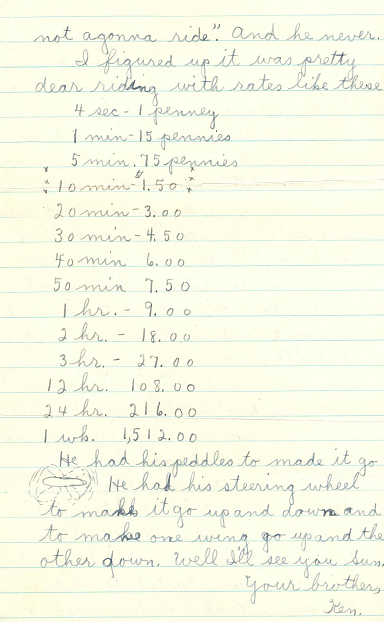 not agonna ride". And he never.
I figured up it was pretty
dear riding with rates like these
4 sec - 1 penney
1 min - 15 pennies
5 min. 75 pennies
10 min - $1.50
20 min - 3.00
30 min - 4.50
40 min 6.00
50 min 7.50
1 hr. - 9.00
2 hr. - 18.00
3 hr. - 27.00
12 hr. 108.00
24 hr. 216.00
1 wk. 1,512.00
He had his peddles to made it go
He had his steering wheel
to make it go up and down and
to make one wing go up and the
other down. Well I'll see you Sun.
Your brother,
Ken.